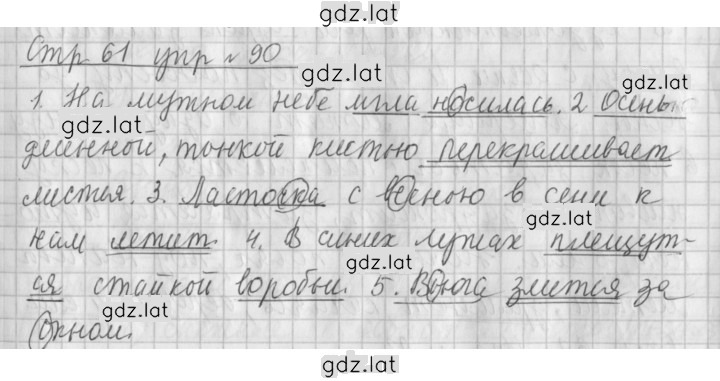 gdz.lat
Стр 61 упр № 90
gdz.lat
1. На мутном небе мгла носилась. 2 Осень
gdz.lat
gdz.lat
денной, тонкой кистью перекрашивает
листья. 3. Ласточка с весною в сени к
gdz.lat
нам летит. 4. В синих лужах плещут-
gdz.lat
ся стайкой воробьи. 5. Вьюга злится за
окном.
gdz.lat